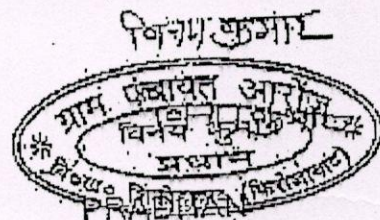 विनय कुमार
ग्राम पंचायत आरोंज
विनय कुमार
प्रधान
वि०ख० (फिरोजाबाद)
PRADHAN